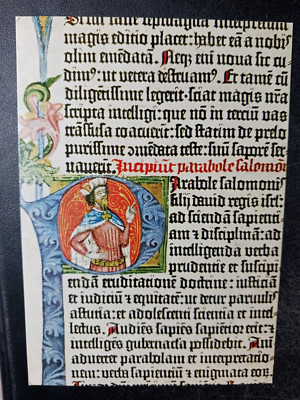 Si cui sane septuaginta interpretum
magis editio placet: habet eã a nobis
olim emẽdatã. Neqȝ enĩ nova sic cu
dim⁹: ut vetera destruam⁹. Et tamẽ cũ
diligẽtissime legerit: sciat magis nr̃a
scripta intelligi: que nõ in terciũ vas
trãsfusa coacuerit: sed statim de prelo
purissime ꝯmẽdata teste: suũ saporẽ ser
vaverit. Incipiũt parabole salomo
Parabole salomonis
filij david regis isrl̃:
ad sciendã sapienci
am ⁊ disciplinã: ad
intelligenda verba
prudentie et suscipi
endã eruditationẽ doctrine: iusticiã
et iudiciũ ⁊ equitatẽ: ut detur parvulis
astutia: et adolescenti sciencia et intel
lectus. Audiẽs sapiẽs sapiẽtior erit: ⁊
intelligẽs gubernacla possidebit. Ani
advertet parabolam et interpretatio
nem: verba sapientiũ ⁊ enigmata eorũ